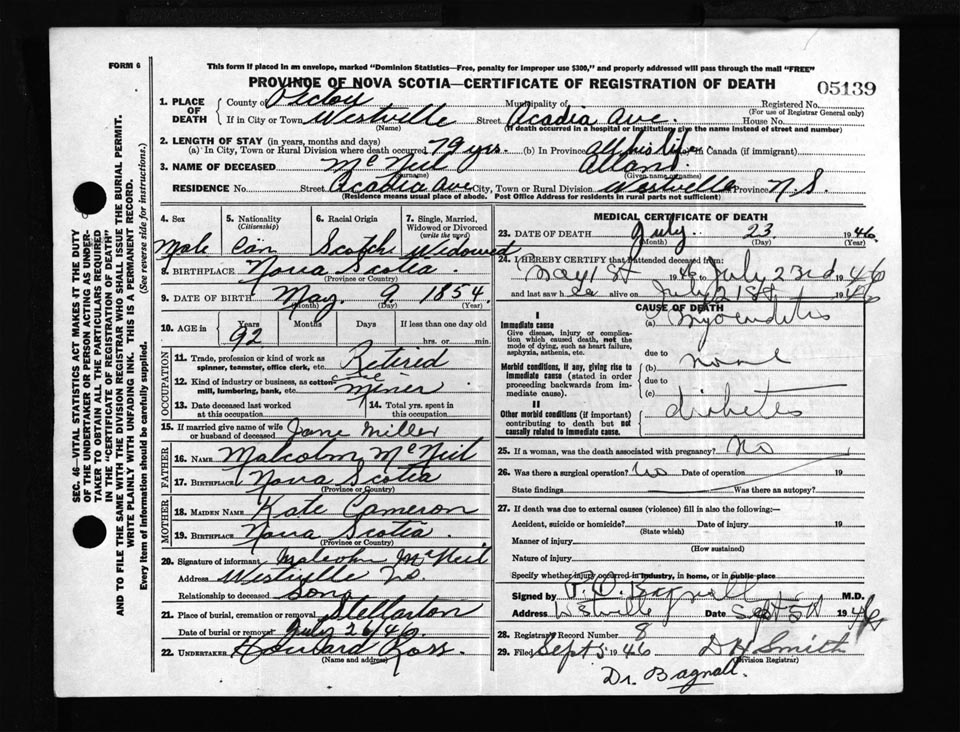 FORM 6
This form if placed in an envelope, marked "Dominion Statistics—Free, penalty for improper use $300," and properly addressed will pass through the mail "FREE"
PROVINCE OF NOVA SCOTIA—CERTIFICATE OF REGISTRATION OF DEATH
05139
1. PLACE OF DEATH
County of Pictou Municipality of Registered No.
(For use of Registrar General only)
If in City or Town Westville Street Acadia Ave. House No.
(Name) (If death occurred in a hospital or institution, give the name instead of street and number)
2. LENGTH OF STAY (in years, months and days)
(a) In City, Town or Rural Division where death occurred 79 yrs. (b) In Province All his life (c) In Canada (if immigrant)
3. NAME OF DECEASED Mc Neil Allan
(Surname) (Given name or names)
RESIDENCE No. Street Acadia Ave City, Town or Rural Division Westville Province N.S.
(Residence means usual place of abode. Post Office Address for residents in rural parts not sufficient)
4. Sex
Male
5. Nationality
(Citizenship)
Can
6. Racial Origin
Scotch
7. Single, Married, Widowed or Divorced
(write the word)
Widowed
8. BIRTHPLACE Nova Scotia
(Province or Country)
9. DATE OF BIRTH May 9 1854.
(Month) (Day) (Year)
10. AGE in Years Months Days If less than one day old
92 hrs. or min.
OCCUPATION
11. Trade, profession or kind of work as spinner, teamster, office clerk, etc. Retired
12. Kind of industry or business, as cotton-mill, lumbering, bank, etc. Miner
13. Date deceased last worked at this occupation
14. Total yrs. spent in this occupation
15. If married give name of wife or husband of deceased Jane Miller
FATHER
16. NAME Malcolm McNeil
17. BIRTHPLACE Nova Scotia
(Province or Country)
MOTHER
18. MAIDEN NAME Kate Cameron
19. BIRTHPLACE Nova Scotia
(Province or Country)
20. Signature of informant Malcolm McNeil
Address Westville
Relationship to deceased Son
21. Place of burial, cremation or removal Stellarton
Date of burial or removal July 26/46.
22. UNDERTAKER Howard Ross
(Name and address)
MEDICAL CERTIFICATE OF DEATH
23. DATE OF DEATH July 23 1946.
(Month) (Day) (Year)
24. I HEREBY CERTIFY that I attended deceased from:
May 1st 1946 to July 23rd 1946
and last saw h alive on July 21st 1946
CAUSE OF DEATH
I
Immediate cause
Give disease, injury or complication which caused death, not the mode of dying, such as heart failure, asphyxia, asthenia, etc.
(a) Myocarditis
due to
Morbid conditions, if any, giving rise to immediate cause (stated in order proceeding backwards from immediate cause).
(b) none
due to
(c)
II
Other morbid conditions (if important) contributing to death but not causally related to immediate cause.
diabetes
25. If a woman, was the death associated with pregnancy? No
26. Was there a surgical operation? No Date of operation 19
State findings Was there an autopsy?
27. If death was due to external causes (violence) fill in also the following:—
Accident, suicide or homicide? Date of injury 19
(State which)
Manner of injury
(How sustained)
Nature of injury
Specify whether injury occurred in industry, in home, or in public place
Signed by Bagnall M.D.
Address Westville Date Sept 5th 1946
28. Registrar's Record Number 8
29. Filed Sept 5 1946 D H Smith
(Division Registrar)
Dr. Bagnall.
SEC. 46—VITAL STATISTICS ACT MAKES IT THE DUTY
OF THE UNDERTAKER OR PERSON ACTING AS UNDER-
TAKER TO OBTAIN ALL THE PARTICULARS REQUIRED
IN THE "CERTIFICATE OF REGISTRATION OF DEATH"
AND TO FILE THE SAME WITH THE DIVISION REGISTRAR WHO SHALL ISSUE THE BURIAL PERMIT.
WRITE PLAINLY WITH UNFADING INK. THIS IS A PERMANENT RECORD.
Every item of information should be carefully supplied. (See reverse side for instructions.)